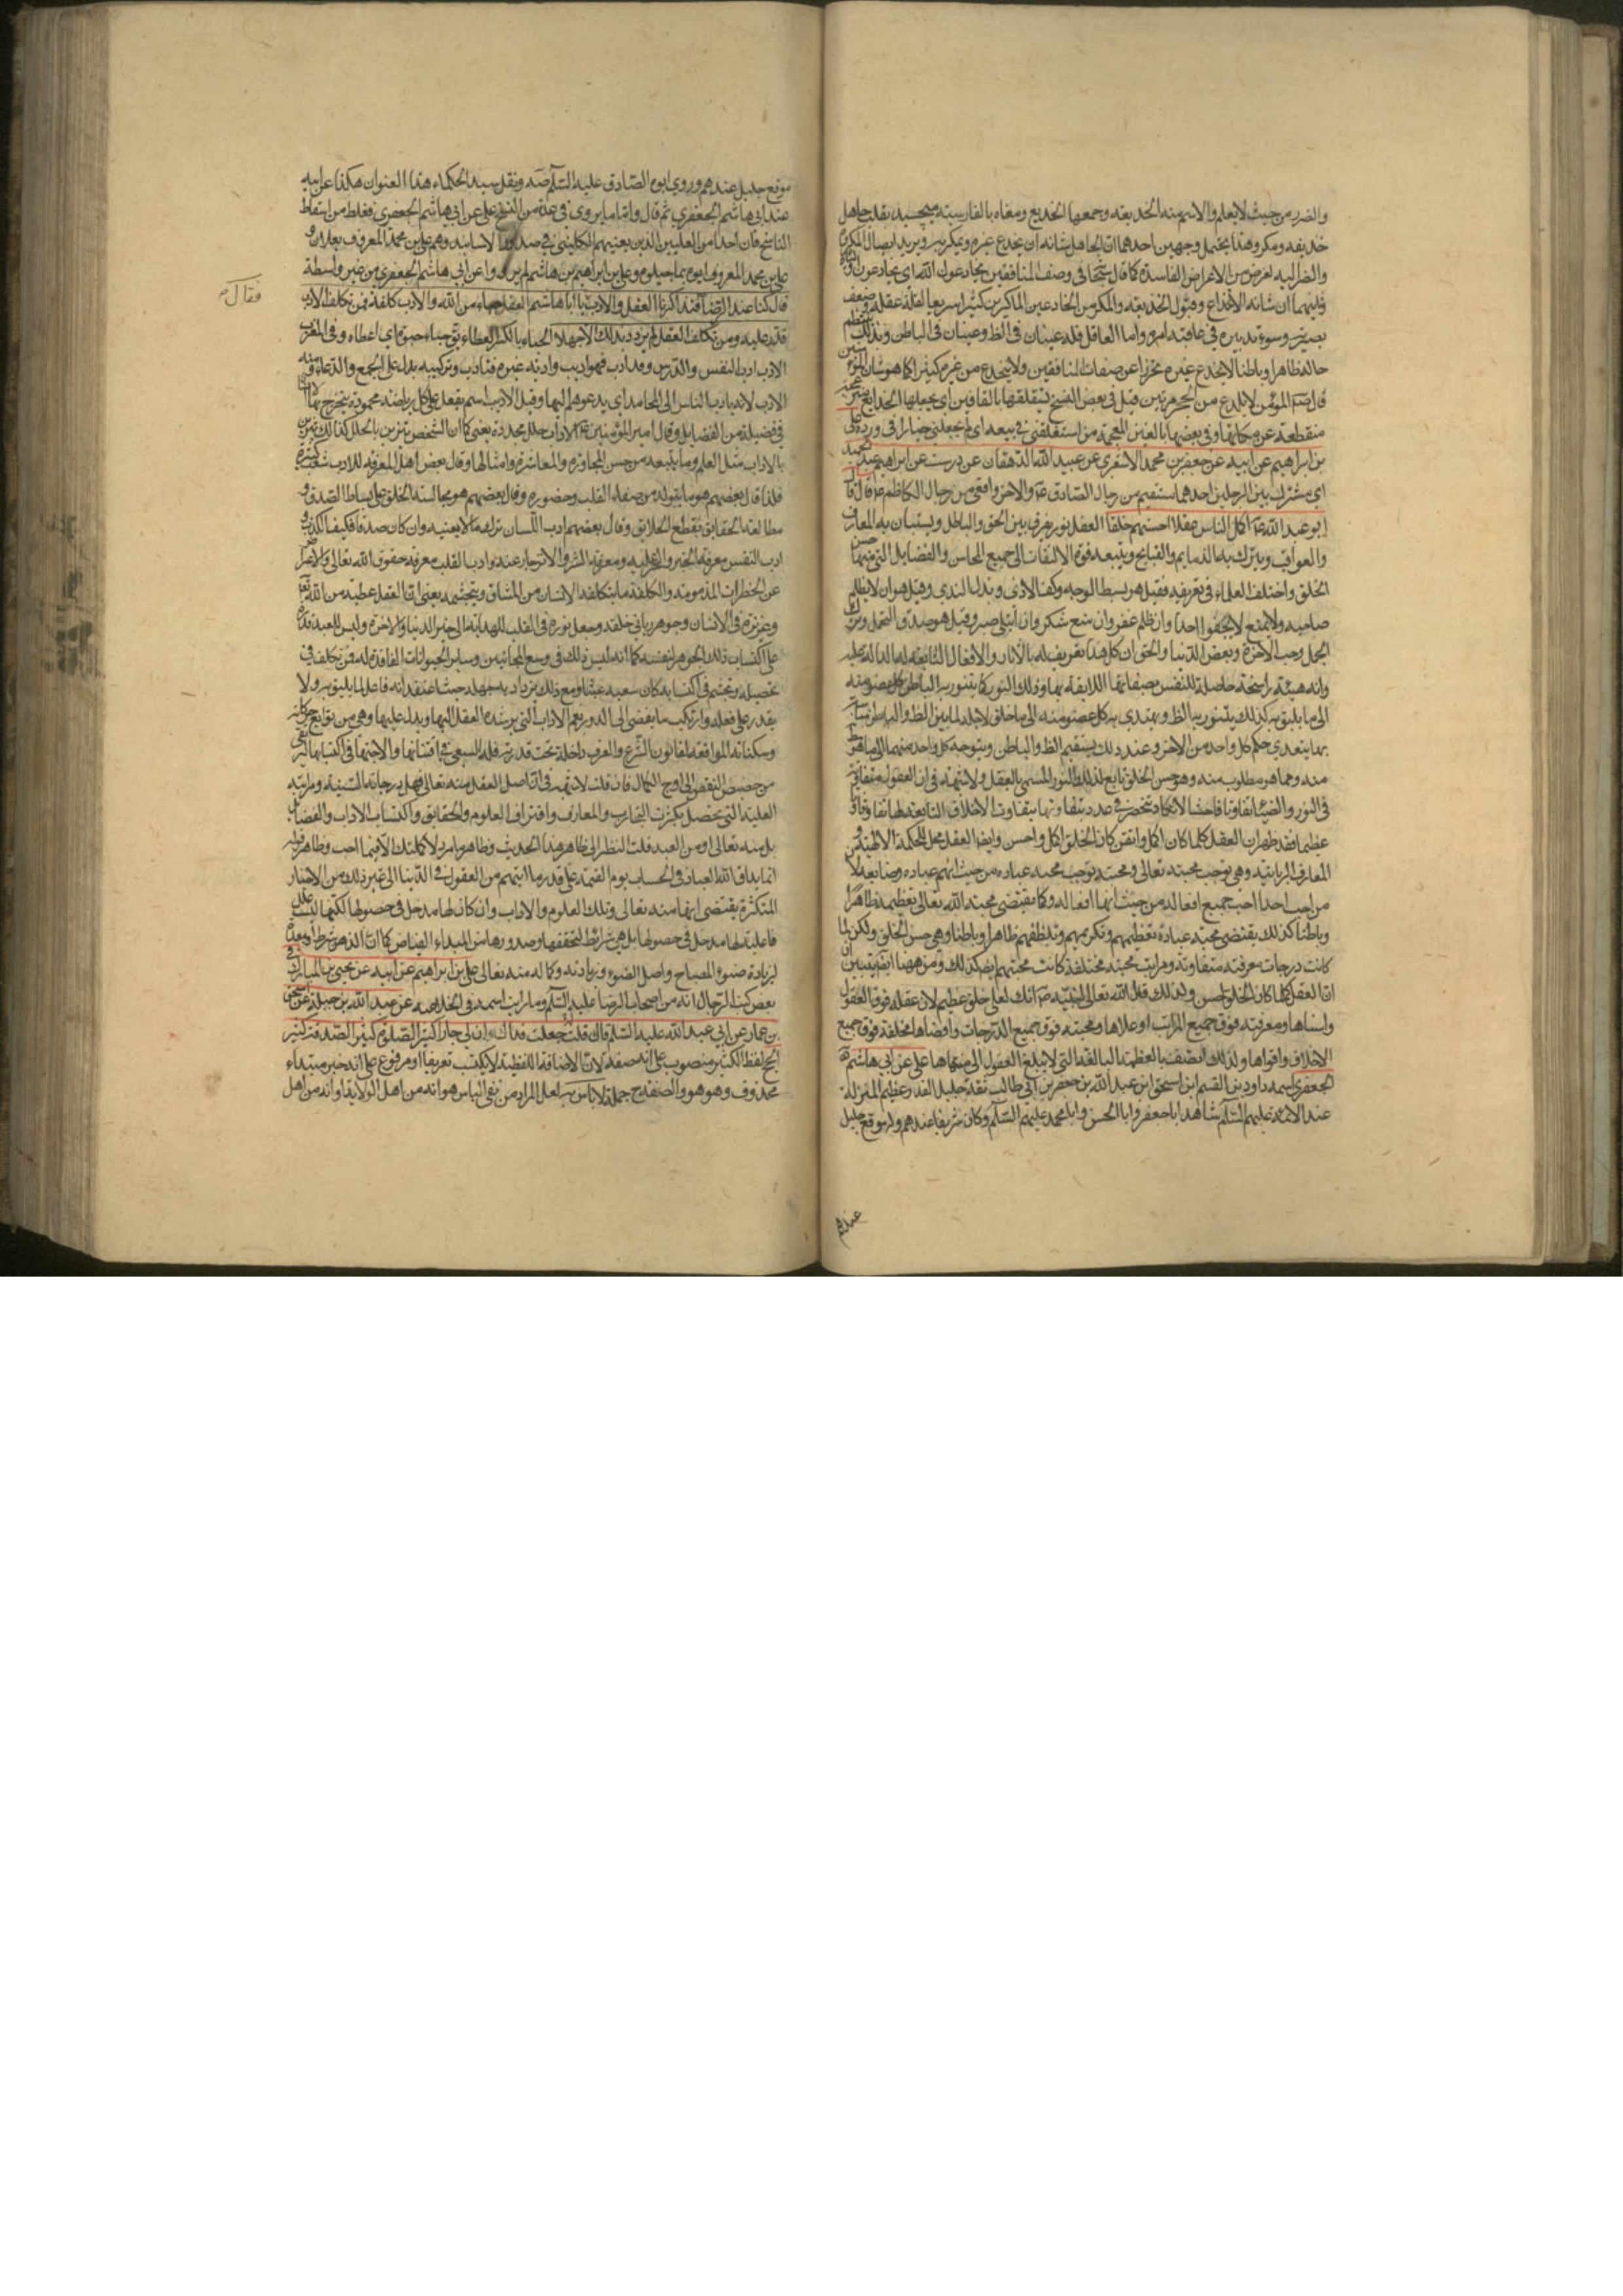 والضرر من حيث لا يعلم والاسم منه الخديعة وجمعها الخدايع ومعناه بالفارسية
خديعة ومكر وهذا يحتمل وجهين احدهما ان الجاهل شانه ان يخدع غيره ويمكر به ويريد ايصال المكروه
والضرر اليه لغرض من الاغراض الفاسدة كما قال سبحانه في وصف المنافقين يخادعون الله اي يخادعون
وثانيهما ان شانه الانخداع وقبول الخديعة والمكر من الخادعين الماكرين كثيرا سريعا لقلة عقله وضعف
بصيرته وسوء تدبيره في عاقبة امره واما العاقل فله عينان في الظ وعينان في الباطن وبذلك ينتظم
حاله ظاهرا وباطنا لا يخدع غيره تحرزا عن صفات المنافقين ولا ينخدع من غيره كثيرا كما هو شان المؤمنين
قال المؤمن لا يلدغ من جحر مرتين قيل في بعض النسخ بالقافين اي يجعلها الخدايع
منقطعة عن مكانها وفي بعضها بالغين المعجمة من استغلقني في بيعه اي لم يجعل لي خيارا في رده علي
بن ابراهيم عن ابيه عن جعفر بن محمد الاشعري عن عبيد الله الدهقان عن درست عن ابراهيم بن عبد الحميد
اي مشترك بين الرجلين احدهما مستقيم من رجال الصادق ع والاخر واقفي من رجال الكاظم ع قال قال
ابو عبد الله ع اكمل الناس عقلا احسنهم خلقا العقل نور يفرق به بين الحق والباطل ويستبان به المعارف
والعواقب ويترك به الذمايم والقبايح ويتبعه قوة الالتفات الى جميع المحاسن والفضايل التي منها حسن
الخلق واختلف العلماء في تعريفه فقيل هو بسط الوجه وكف الاذى وبذل الندى وقيل هو ان لا يظلم
صاحبه ولا يمنع لا يجفو احدا وان ظلم غفر وان منع شكر وان ابتلي صبر وقيل هو صدق التحمل وترك
التجمل وحب الاخرة وبغض الدنيا والحق ان كل هذا تعريف له بالاثار والافعال التابعة له الدالة عليه
وانه هيئة راسخة حاصلة للنفس بصفاتها اللايقة بها وذلك النور كما يتنور به الباطن كل عضو منه
الى ما يليق به كذلك يتنور به الظ ويهتدي به كل عضو منه الى ما خلق لاجله لما بين الظ والباطن
بها يتعدى حكم كل واحد من الاخر وعند ذلك يستقيم الظ والباطن ويتوجه كل واحد منهما الى ما هو
منه وما هو مطلوب منه وهو حسن الخلق تابع لذلك النور المسمى بالعقل ولا شبهة في ان العقول متفاوتة
في النور والضياء تفاوتا فاحشا لا يكاد تنحصر في عدد وبتفاوتها يتفاوت الاخلاق التابعة لها تفاوتا
عظيما فقد ظهر ان العقل كلما كان اكمل واتقن كان الخلق اكمل واحسن وايضا العقل محل للحكمة الالهية و
المعارف الربانية وهي توجب محبته تعالى ومحبته توجب محبة عباده من حيث انهم عباده وصنايعه لان
من احب احدا احب جميع افعاله من حيث انها افعاله وكما يقتضي محبة الله تعالى تعظيمه ظاهرا
وباطنا كذلك يقتضي محبة عباده تعظيمهم وتكريمهم وتلطفهم ظاهرا وباطنا وهي حسن الخلق ولكن لما
كانت درجات معرفته متفاوتة ومراتب محبته مختلفة كانت محبتهم ايضا كذلك ومن ههنا ايضا يتبين
ان العقل كلما كان الخلق احسن ولذلك قال الله تعالى لنبيه ص انك لعلى خلق عظيم لان عقله فوق العقول
واسناها ومعرفته فوق جميع المراتب واعلاها ومحبته فوق جميع الدرجات واقصاها فخلقه فوق جميع
الاخلاق واقواها ولذلك اتصف بالعظمة البالغة التي لا يبلغ العقول الى منتهاها علي عن ابي هاشم
الجعفري اسمه داود بن القسم ابن اسحق ابن عبد الله بن جعفر بن ابي طالب ثقة جليل القدر عظيم المنزلة
عند الائمة عليهم السلام شاهد ابا جعفر وابا الحسن وابا محمد عليهم السلام وكان شريفا عندهم وله موقع جليل
عندهم
موقع جليل عندهم وروى ابوه الصادق عليه السلام ونقل سيد الحكماء هذا العنوان هكذا عن ابيه
عن ابي هاشم الجعفري ثم قال واما ما يروى في عدة من النسخ علي عن ابي هاشم الجعفري فغلط من اسقاط
الناسخ فان احدا من العليين الذين يعنيهم الكليني في صدور الاسانيد وهم علي بن محمد المعروف بعلان و
علي بن محمد المعروف ابوه بماجيلويه وعلي بن ابراهيم بن هاشم لم يرووا عن ابي هاشم الجعفري من غير واسطة
قال كنا عند الرضا ع فتذاكرنا العقل والادب يا ابا هاشم العقل حباء من الله والادب كلفة فمن تكلف الادب
فقال
قدر عليه ومن تكلف العقل لم يزدد بذلك الا جهلا الحباء بالكسر العطاء يق حباه حبوة اي اعطاه وفي المغرب
الادب ادب النفس والدرس وقد ادب فهو اديب وادبه غيره فتادب وتركيبه يدل على الجمع والدعاء ومنه
الادب لانه يادب الناس الى المحامد اي يدعوهم اليها وقيل الادب اسم يقع على كل رياضة محمودة يتخرج بها الانسان
في فضيلة من الفضايل وقال امير المؤمنين ع الاداب حلل مجددة يعني كما ان الشخص يتزين بالحلل كذلك يتزين
بالاداب مثل العلم وما يتبعه من حسن المجاورة والمعاشرة وامثالها وقال بعض اهل المعرفة للادب شعب كثيرة
فلذا قال بعضهم هو ما يتولد من صفاء القلب وحضوره وقال بعضهم هو مجالسة الخلق على بساط الصدق و
مطالعة الحقايق بقطع العلايق وقال بعضهم ادب اللسان ترك ما لا يعنيه وان كان صدقا فكيف الكذب و
ادب النفس معرفة الخير والحرص عليه ومعرفة الشر والانزجار عنه وادب القلب معرفة حقوق الله تعالى والاعراض
عن الخطرات المذمومة والكلفة ما يتكلفه الانسان من المشاق ويتجشمه يعني ان العقل عطية من الله تع
وغريزة في الانسان وجوهر رباني خلقه وجعل نوره في القلب للهداية الى خير الدنيا والاخرة وليس للعبد قدرة
على اكتساب ذلك الجوهر لنفسه كما انه ليس ذلك في وسع المجانين وساير الحيوانات الفاقدة له فمن تكلف في
تحصيله وتجشم في اكتسابه كان سعيه عبثا ومع ذلك يزداد به جهله حيث اعتقد انه فاعل لما يليق به ولا
يقدر على فعله وارتكب ما يفضي الى الدور نعم الاداب التي يرشده العقل اليها ويدله عليها وهي من توابع حركاته
وسكناته الموافقة لقانون الشرع والعرف داخلة تحت قدرته فله السعي في اقتنائها والاجتهاد في اكتسابها ليترقى
من حضيض النقص الى اوج الكمال فان قلت لا شبهة في ان اصل العقل منه تعالى فهل درجاته السنية ومراتبه
العلية التي تحصل بكثرة التجارب والمعارف واقتراف العلوم والحقايق واكتساب الاداب والفضايل
بل منه تعالى او من العبد قلت النظر الى ظاهر هذا الحديث وظاهر ما مر ولا اكملتك الا فيما احب وظاهر قوله
انما يداق الله العباد في الحساب يوم القيمة على قدر ما اتيهم من العقول في الدنيا الى غير ذلك من الاخبار
المتكثرة يقتضي انها منه تعالى وتلك العلوم والاداب وان كان لها مدخل في حصولها لكنها ليست علل
فاعلية لها مدخل في حصولها بل هي شرائط لتحققها وصدورها من المبداء الفياض كما ان الدهن شرط ومعد
لزيادة ضوء المصباح واصل الضوء وزيادته وكماله منه تعالى علي بن ابراهيم عن ابيه عن يحيى بن المبارك في
بعض كتب الرجال انه من اصحاب الرضا عليه السلام وما رايت اسمه في الخلاصة عن عبد الله بن جبلة عن اسحق
بن عمار عن ابي عبد الله عليه السلام قال قلت جعلت فداك ان لي جارا كثير الصلوة كثير الصدقة كثير
الحج لفظ الكثير منصوب على انه صفة لان الاضافة اللفظية لا يكتسب تعريفا او مرفوع على انه خبر مبتداء
محذوف وهو هو والصفة ح جملة لا باس به لعل المراد من نفي الباس هو انه من اهل الولاية او انه من اهل